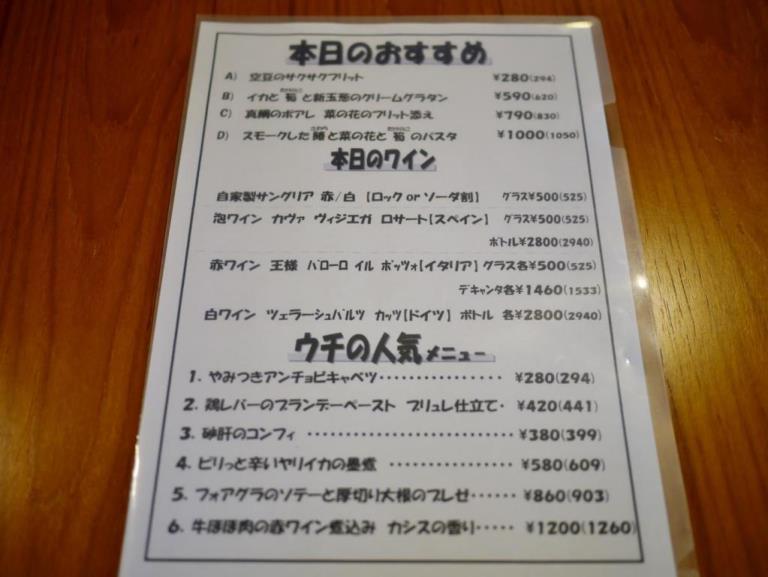 本日のおすすめ
A) 空豆のサクサクフリット ¥280(294)
B) イカと 筍 と新玉葱のクリームグラタン ¥590(620)
C) 真鯛のポアレ 菜の花のフリット添え ¥790(830)
D) スモークした鰆と菜の花と 筍 のパスタ ¥1000(1050)
本日のワイン
自家製サングリア 赤/白 【ロック or ソーダ割】 グラス¥500(525)
泡ワイン カヴァ ヴィジエガ ロサート【スペイン】 グラス¥500(525)
ボトル¥2800(2940)
赤ワイン 王様 バローロ イル ポッツォ【イタリア】 グラス各¥500(525)
デキャンタ各¥1460(1533)
白ワイン ツェラーシュバルツ カッツ【ドイツ】 ボトル 各¥2800(2940)
ウチの人気メニュー
1. やみつきアンチョビキャベツ················ ¥280(294)
2. 鶏レバーのブランデーペースト ブリュレ仕立て· ¥420(441)
3. 砂肝のコンフィ ·························· ¥380(399)
4. ピリっと辛いヤリイカの墨煮 ················ ¥580(609)
5. フォアグラのソテーと厚切り大根のブレゼ······ ¥860(903)
6. 牛ほほ肉の赤ワイン煮込み カシスの香り····· ¥1200(1260)